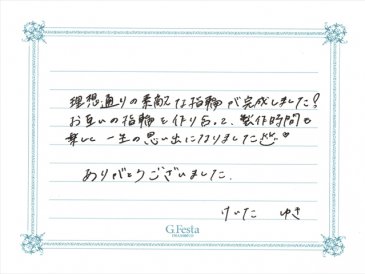 理想通りの素敵な指輪が完成しました!
お互いの指輪を作り合って、製作時間も
楽しく一生の思い出になりました
ありがとうございました.
けいた ゆき
G.Festa